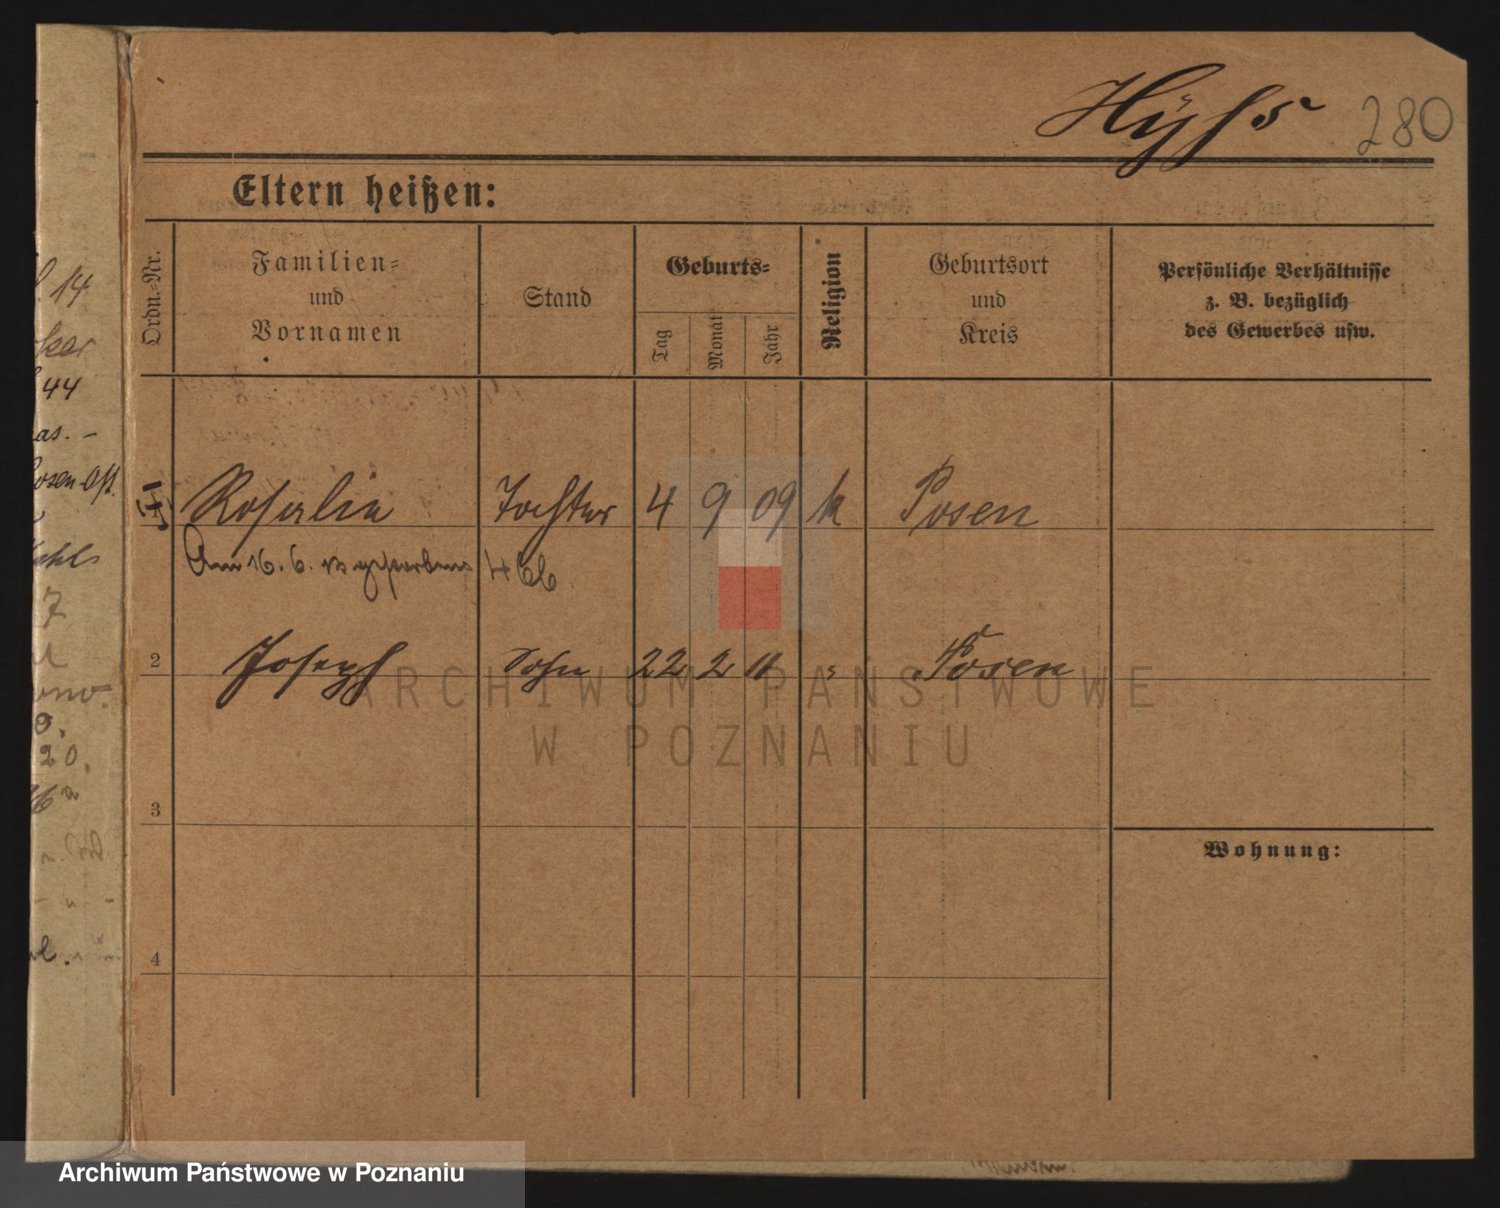 280
Eltern heißen:
Ordn.-Nr.
Familien-
und
Vornamen
Stand
Geburts-
Tag
Monat
Jahr
Religion
Geburtsort
und
Kreis
Persönliche Verhältnisse
z. B. bezüglich
des Gewerbes usw.
Rosalie Tochter 4 9 09 k Posen
Am 16. 6. 13 gestorben
2 Joseph Sohn 22 2 11 " Posen
3
Wohnung:
4
14
44
as. -
7
20.
ARCHIWUM PAŃSTWOWE
W POZNANIU
Archiwum Państwowe w Poznaniu